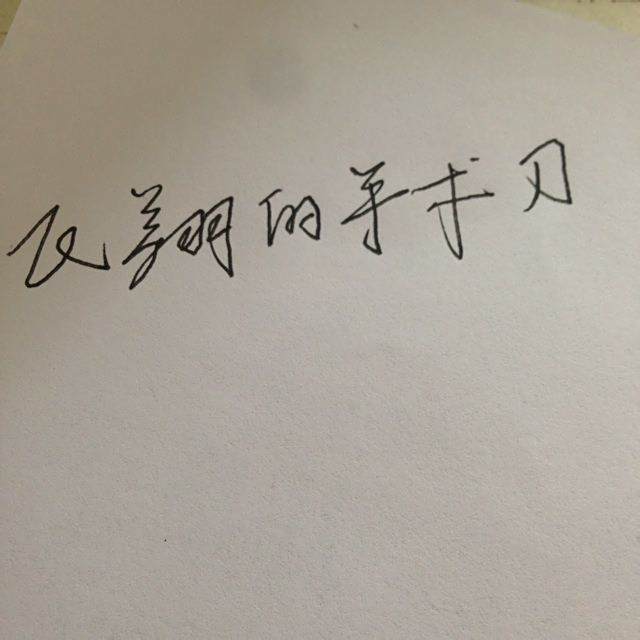 飞翔的手术刀